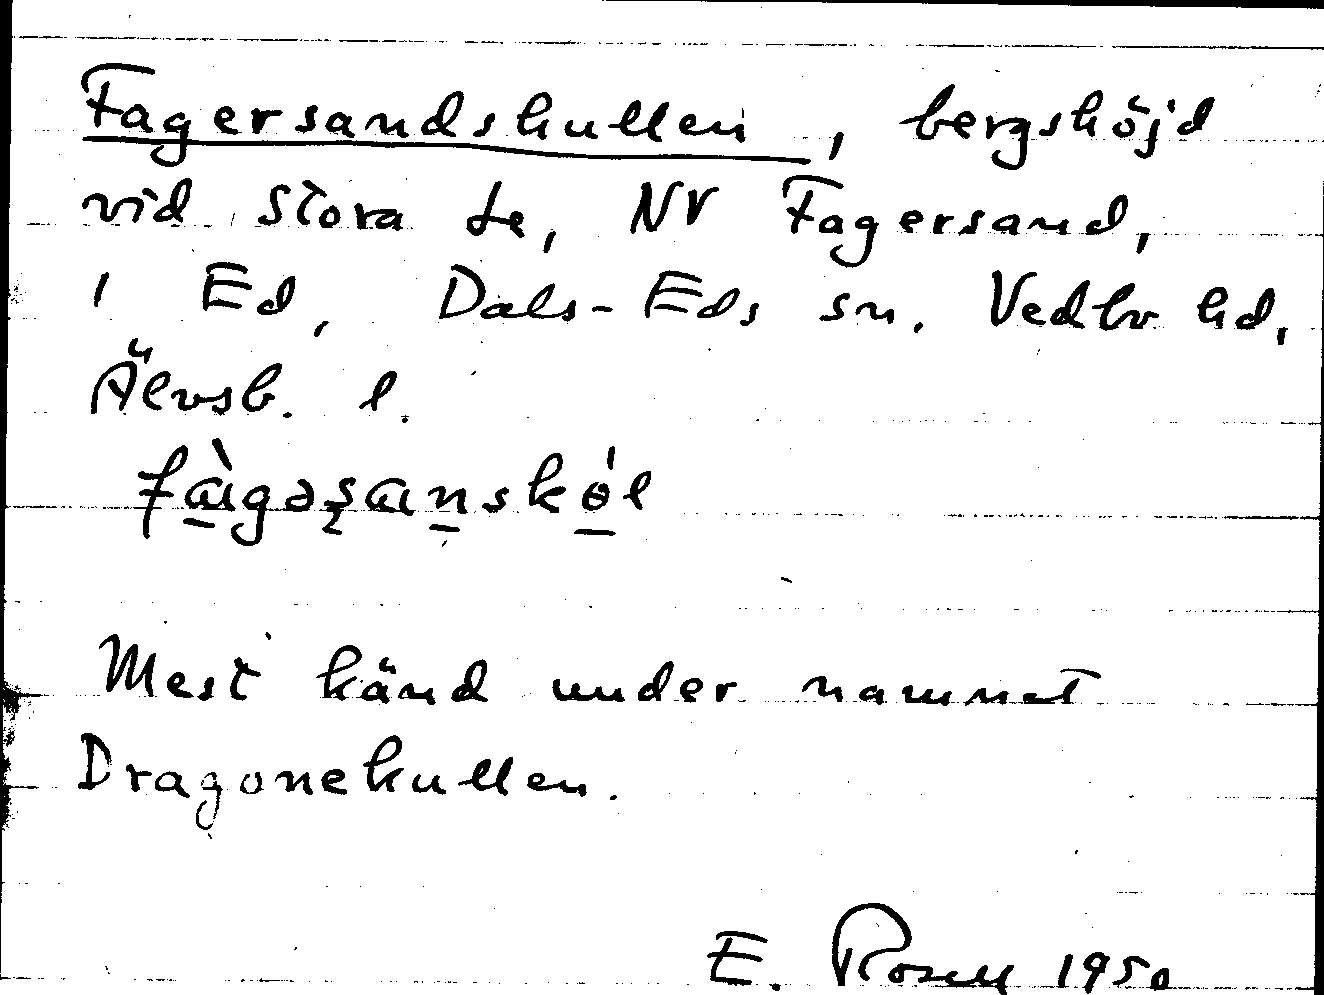 Fagersandskullen, bergshöjd
vid Stora Le, NV Fagersand,
i Ed, Dals-Eds sn. Vedbo hd,
Älvsb. l.
fàgəʂanskɵ́l
Mest känd under namnet
Dragonekullen.
E. Rosell 1950